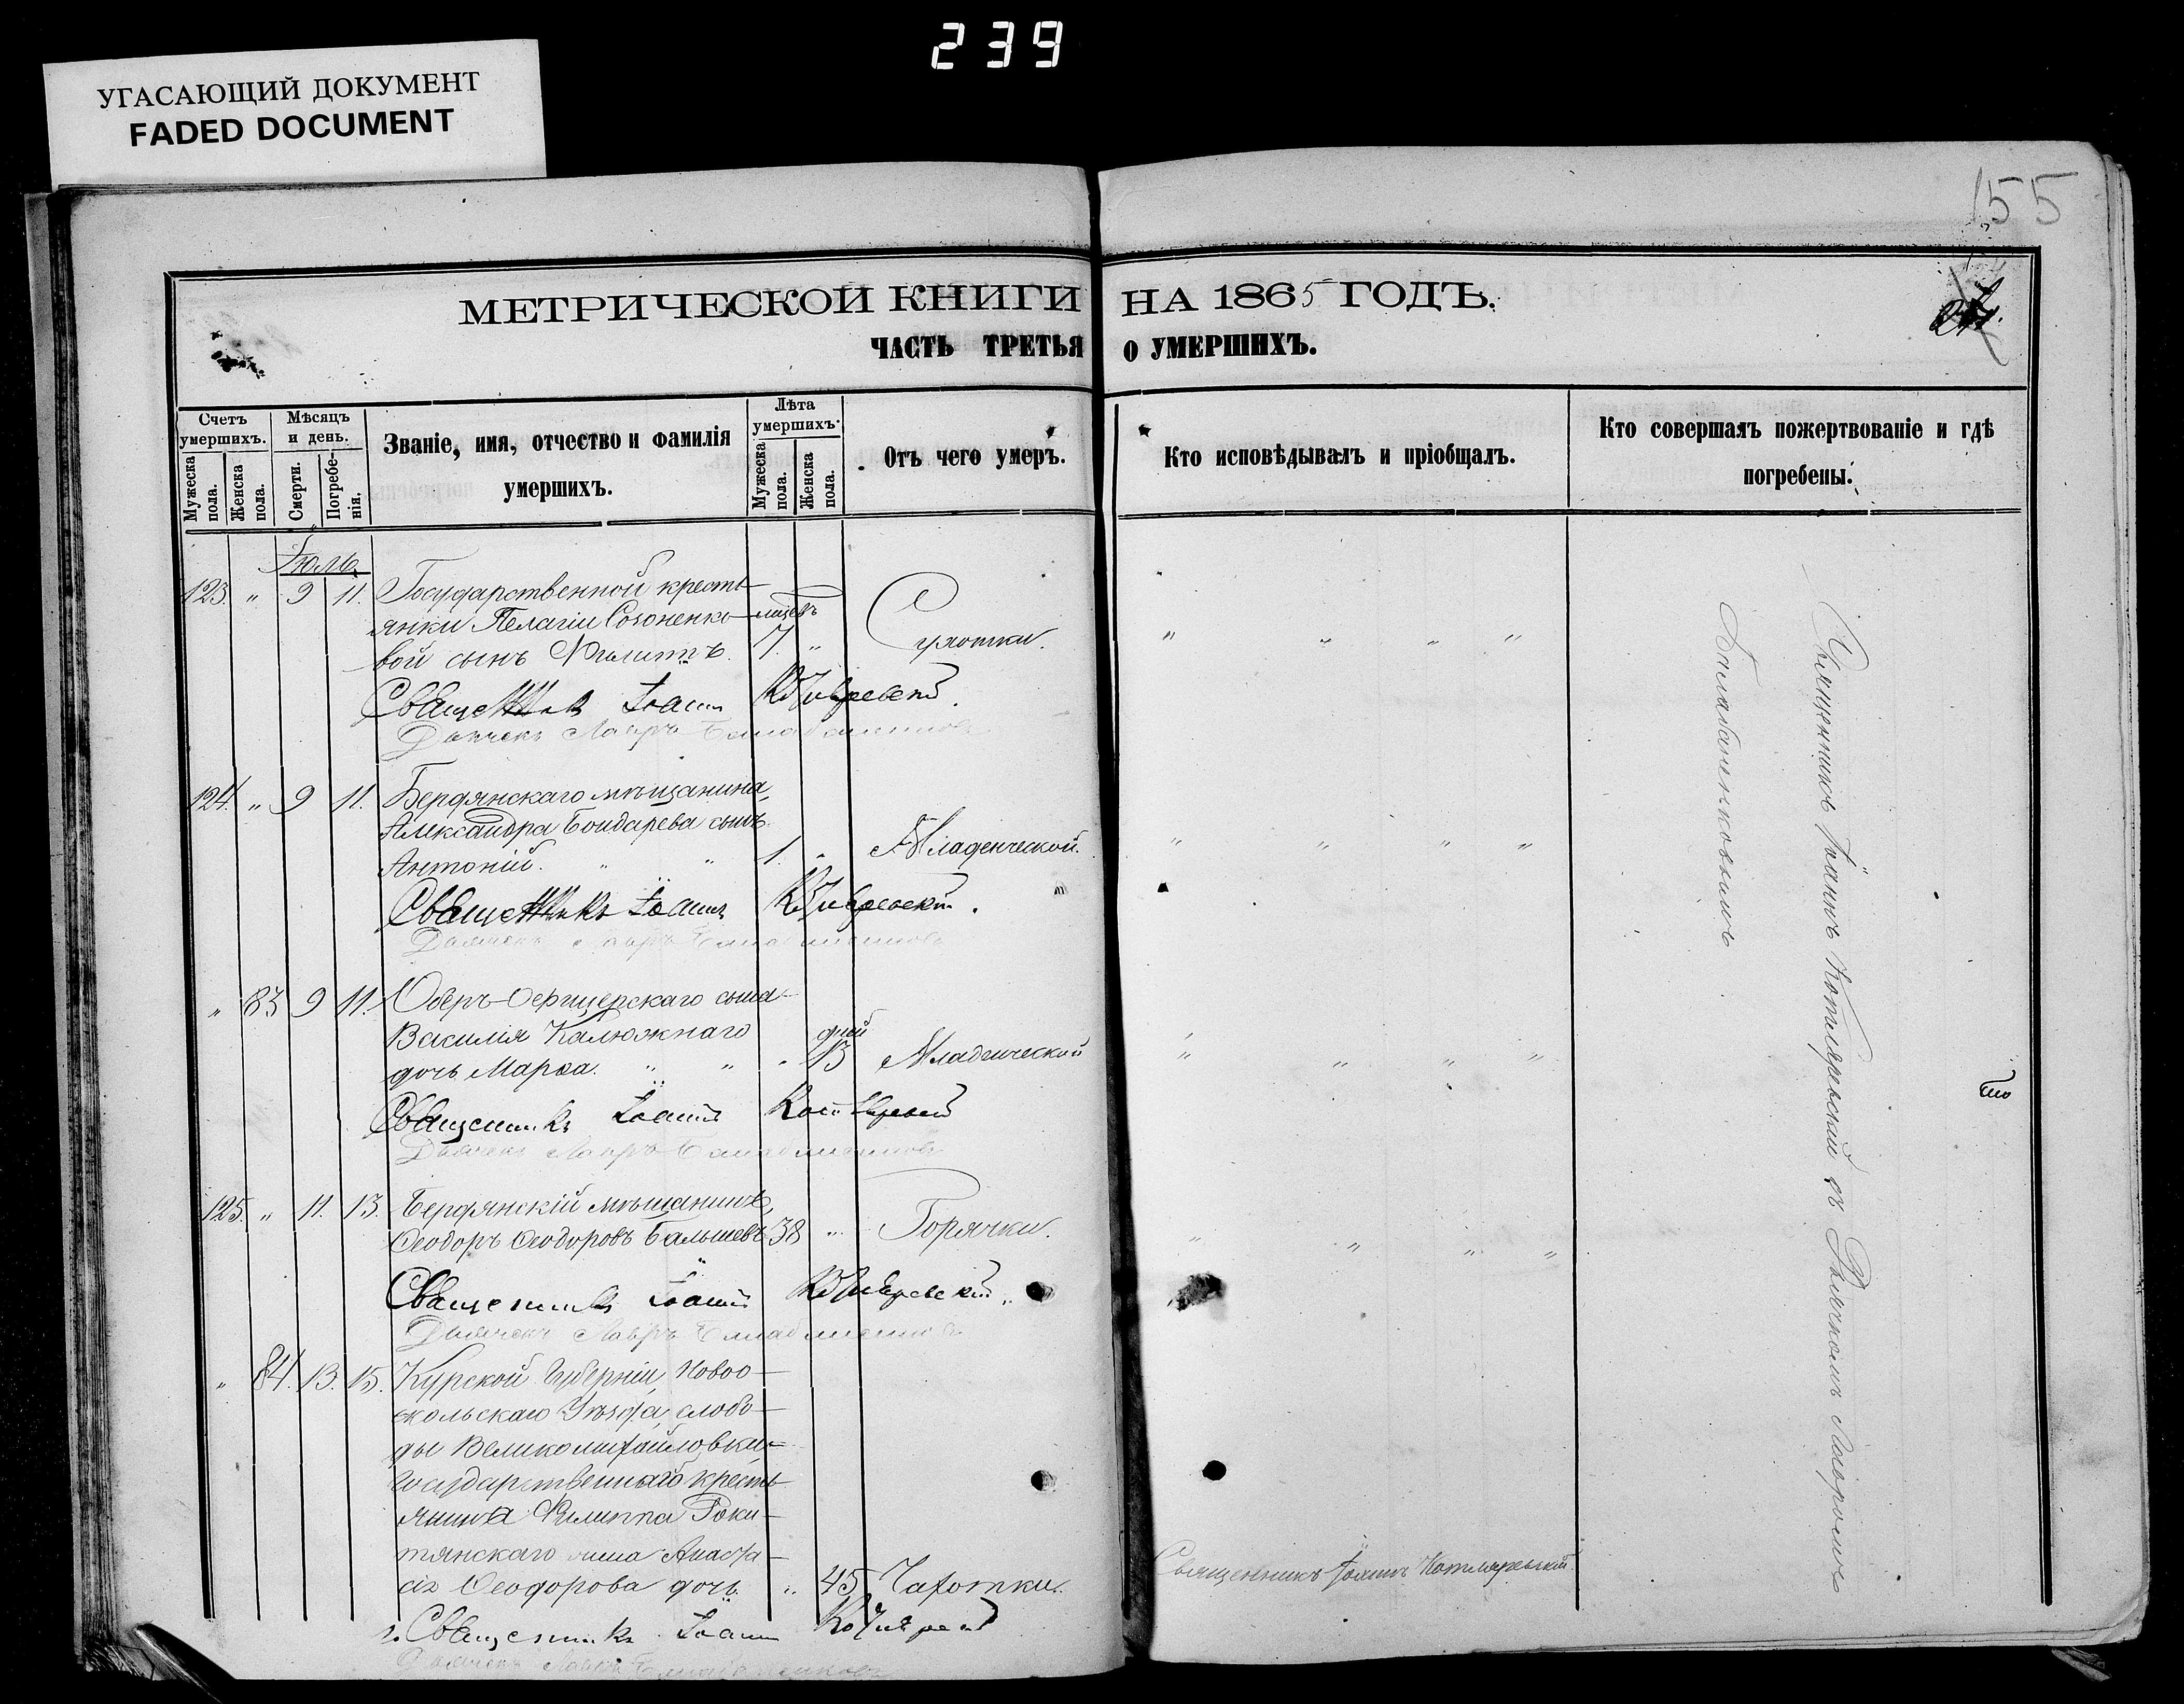 239
УГАСАЮЩИЙ ДОКУМЕНТ
FADED DOCUMENT
155
МЕТРИЧЕСКОЙ КНИГИ НА 1865 ГОДЪ.
ЧАСТЬ ТРЕТЬЯ О УМЕРШИХЪ.
Счетъ умершихъ.
Мужеска пола.
Женска пола.
Мѣсяцъ и день.
Смерти.
Погребенія.
Званіе, имя, отчество и фамилія умершихъ.
Лѣта умершихъ.
Мужеска пола.
Женска пола.
Отъ чего умеръ.
Кто исповѣдывалъ и пріобщалъ.
Кто совершалъ пожертвованіе и гдѣ
погребены.
Іюль
123. " 9 11. Государственной кресть-
янки Пелагіи Созоненко- мѣсяцевъ
вой сынъ Филиппъ. 7. " Сухотки. " " " "
Священникъ Іоаннъ Котляревскій.
Дьячекъ Лавръ Балабаненковъ
124. " 9 11. Бердянскаго мѣщанина,
Александра Бондарева сынъ
Антоній. " " 1. " Младенческой. " " " "
Священникъ Іоаннъ Котляревскій.
Дьячекъ Лавръ Балабаненковъ
" 83 9 11. Оберъ-Офицерскаго сына
Василія Калюжнаго дней
дочь Марѳа. " " " 13 Младенческой " " " "
Священникъ Іоаннъ Котляревскій
Дьячекъ Лавръ Балабаненковъ
125. " 11. 13. Бердянскій мѣщанинъ,
Ѳеодоръ Ѳеодоровъ 38 " Горячки. " " " "
Священникъ Іоаннъ Котляревскій
Дьячекъ Лавръ Балабаненковъ
" 84. 13. 15. Курской Губерніи, Новоо-
скольскаго Уѣзда, слобо-
ды Великомихайловки
государственнаго кресть-
янина Филиппа Роки-
тянскаго жена Анаста-
сія Ѳеодорова дочь. " 45 Чахотки.
Священникъ Іоаннъ Котляревскій
Дьячекъ Лавръ Балабаненковъ
Священникъ Іоаннъ Котляревскій
Священникъ Іоаннъ Котляревскій съ Дьячкомъ Лавромъ
Балабаненковымъ